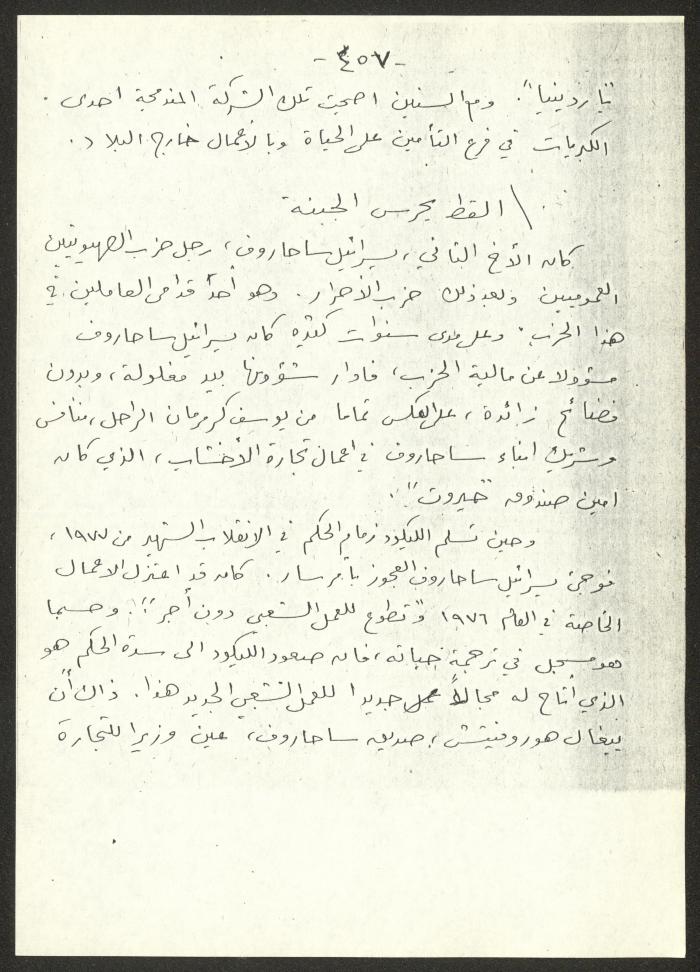 -٤٥٧-
"ياردينيا". ومع السنين اصبحت تلك الشركة المندمجة احدى
الكبريات في فرع التأمين على الحياة وبالاعمال خارج البلاد.
القط يحرس الجبنة
كان الأخ الثاني، يسرائيل ساحاروف، رجل حزب الصهيونيين
العموميين وبعد ذلك حزب الأحرار. وهو أحد قدامى العاملين في
هذا الحزب. وعلى مدى سنوات كثيرة كان يسرائيل ساحاروف
مسؤولا عن مالية الحزب، فادار شؤونها بيد مغلولة، وبدون
فضائح زائدة، على العكس تماما من يوسف كرمرمان الراحل، منافس
وشريك ابناء ساحاروف في اعمال تجارة الأخشاب، الذي كان
امين صندوق "حيروت".
وحين تسلم الليكود زمام الحكم في الانقلاب الشهير من ١٩٧٧،
فوجئ يسرائيل ساحاروف العجوز بأمر سار. كان قد اعتزل الاعمال
الخاصة في العام ١٩٧٦ و"تطوع للعمل الشعبي دون أجر". وحسبما
هو مسجل في ترجمة حياته، فان صعود الليكود الى سدة الحكم هو
الذي أتاح له مجالاً جديدا للعمل الشعبي الجديد هذا. ذاك أن
ييغال هوروفيتش، صديق ساحاروف، عين وزيرا للتجارة